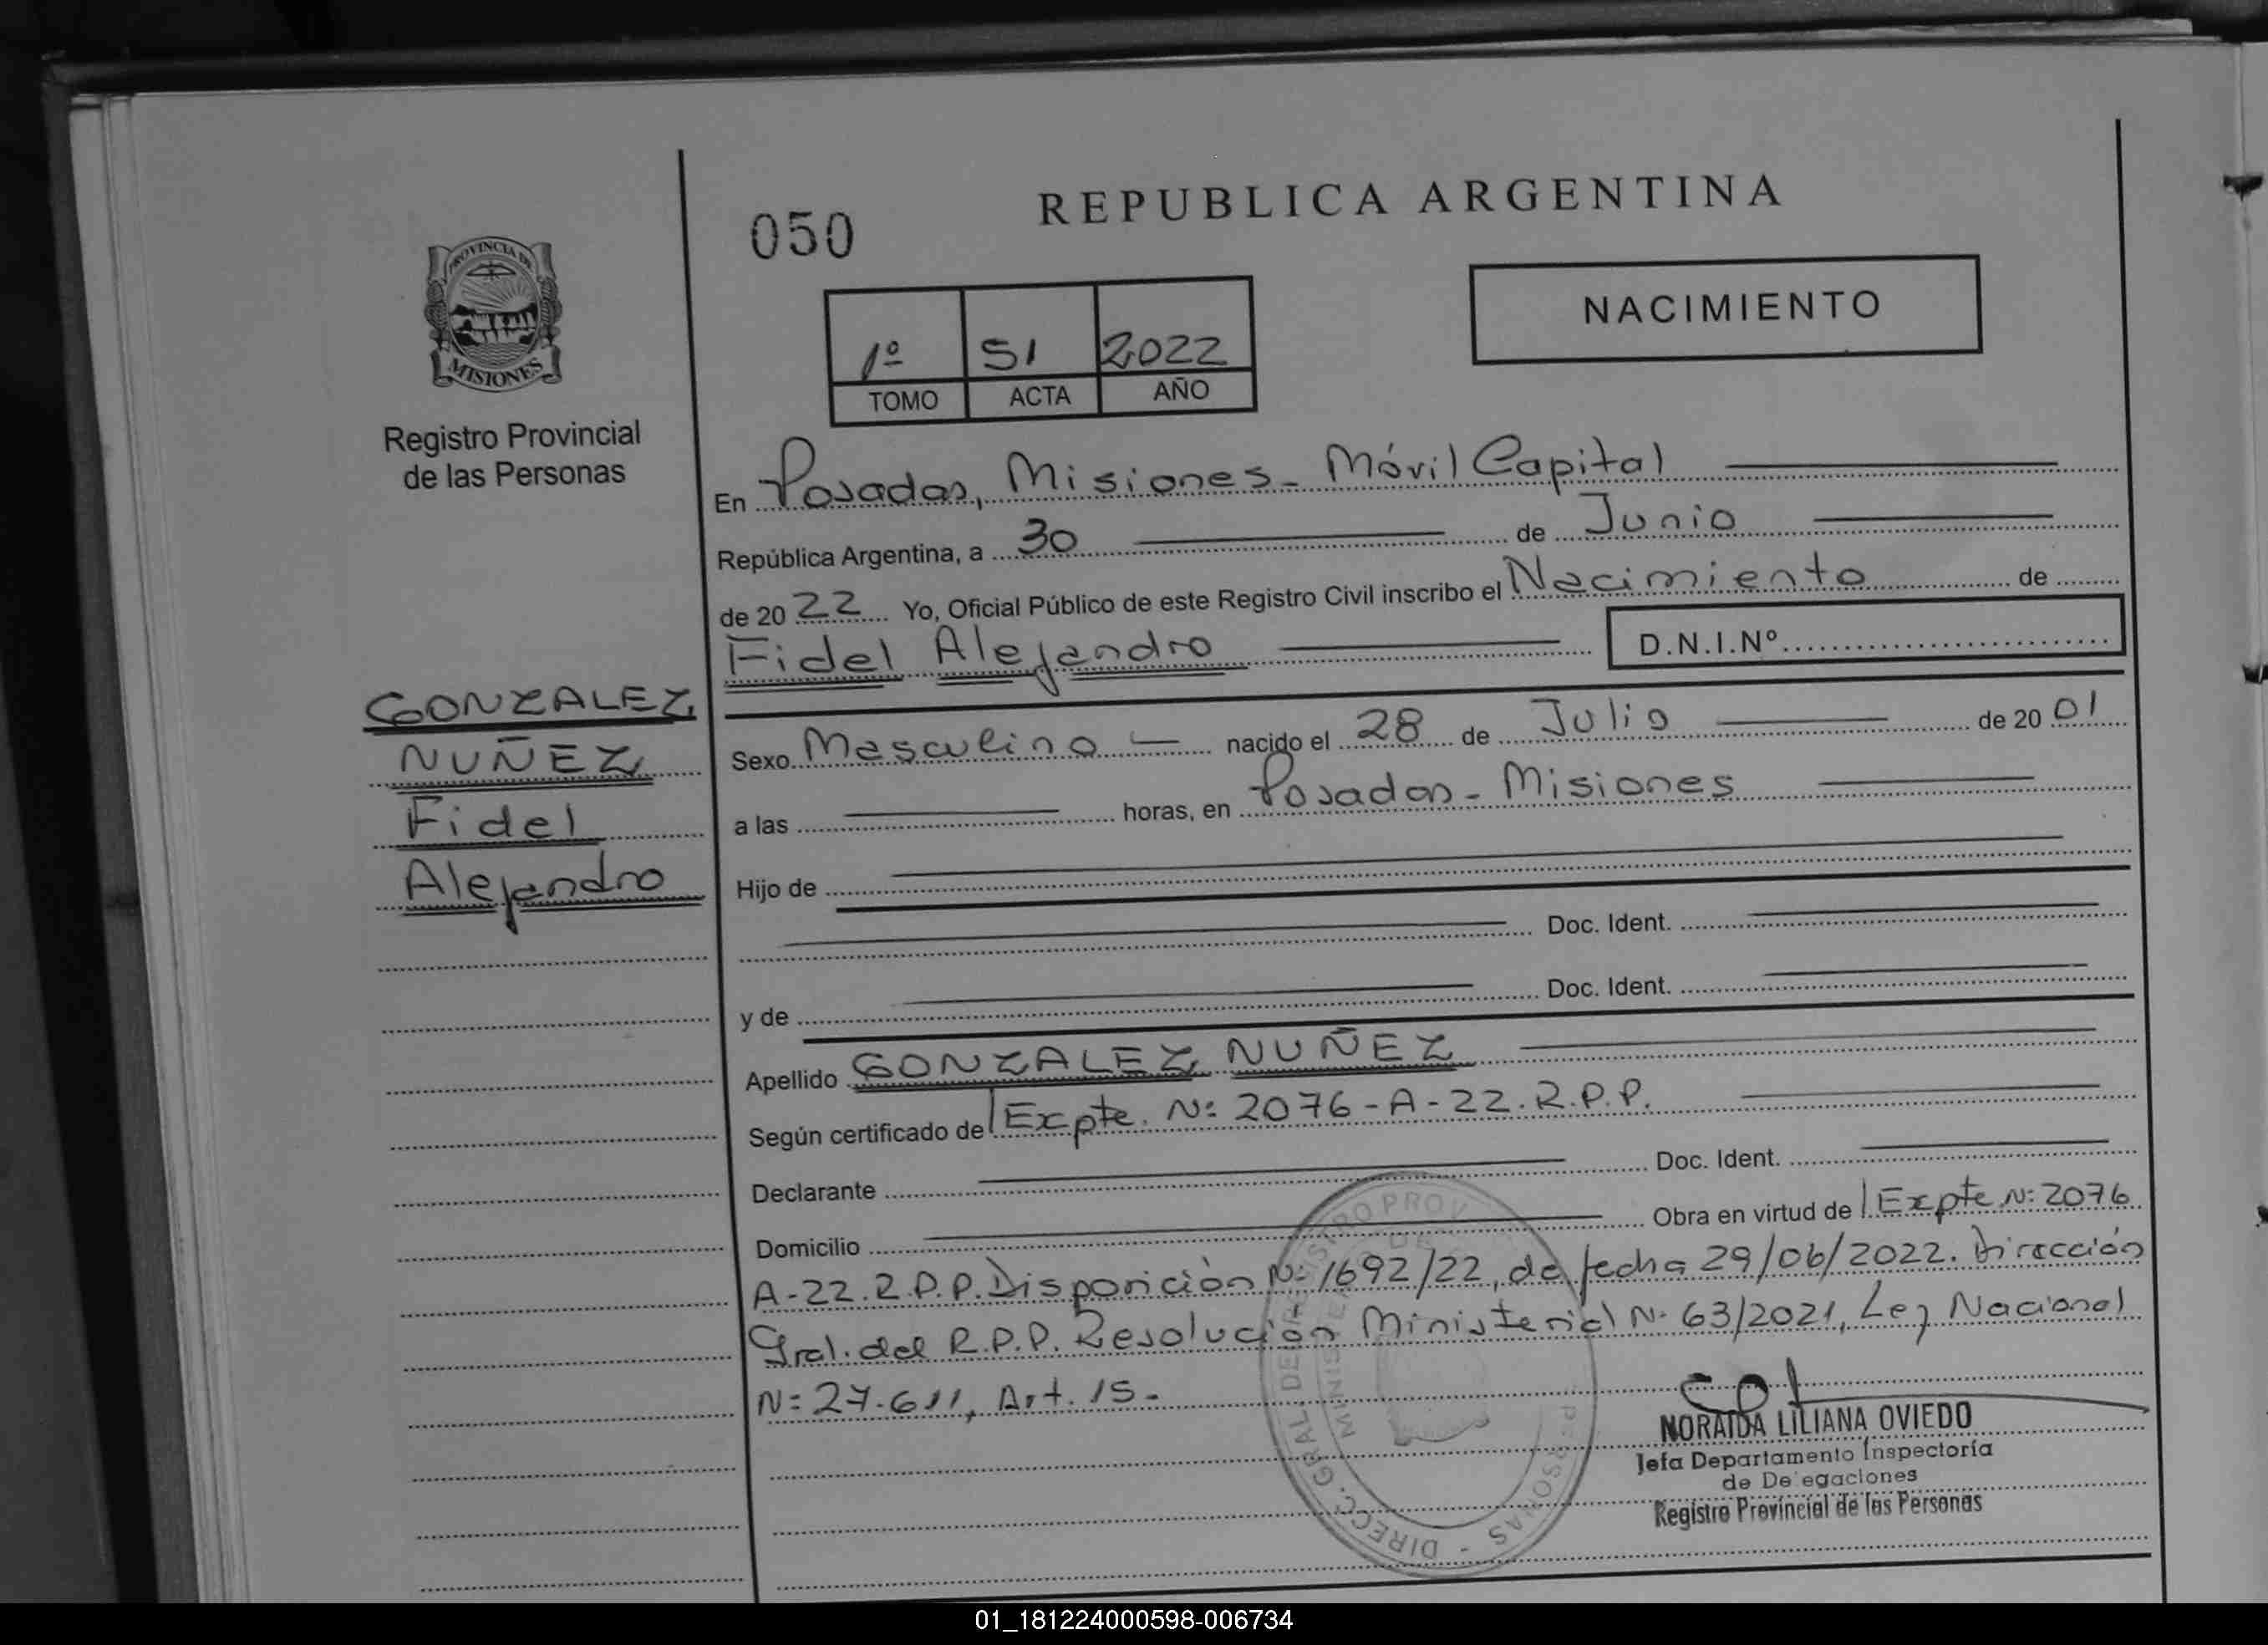 PROVINCIA DE
MISIONES
Registro Provincial
de las Personas
GONZALEZ
NUÑEZ
Fidel
Alejandro
050
REPUBLICA ARGENTINA
1º 51 2022
TOMO ACTA AÑO
NACIMIENTO
En Posadas, Misiones - Móvil Capital
República Argentina, a 30 de Junio
de 2022 Yo, Oficial Público de este Registro Civil inscribo el Nacimiento de
Fidel Alejandro D.N.I.Nº
Sexo Masculino nacido el 28 de Julio de 2001
a las horas, en Posadas - Misiones
Hijo de
Doc. Ident.
y de Doc. Ident.
Apellido GONZALEZ NUÑEZ
Según certificado de Expte. Nº 2076-A-22. R.P.P.
Declarante Doc. Ident.
Domicilio Obra en virtud de Expte Nº 2076
A-22. R.P.P. Disposición Nº 1692/22, de fecha 29/06/2022. Dirección
Gral. del R.P.P. Resolución Ministerial Nº 63/2021, Ley Nacional
Nº 27.611, Art. 15.-
NORAIDA LILIANA OVIEDO
Jefa Departamento Inspectoría
de De egaciones
Registro Provincial de las Personas
01_181224000598-006734